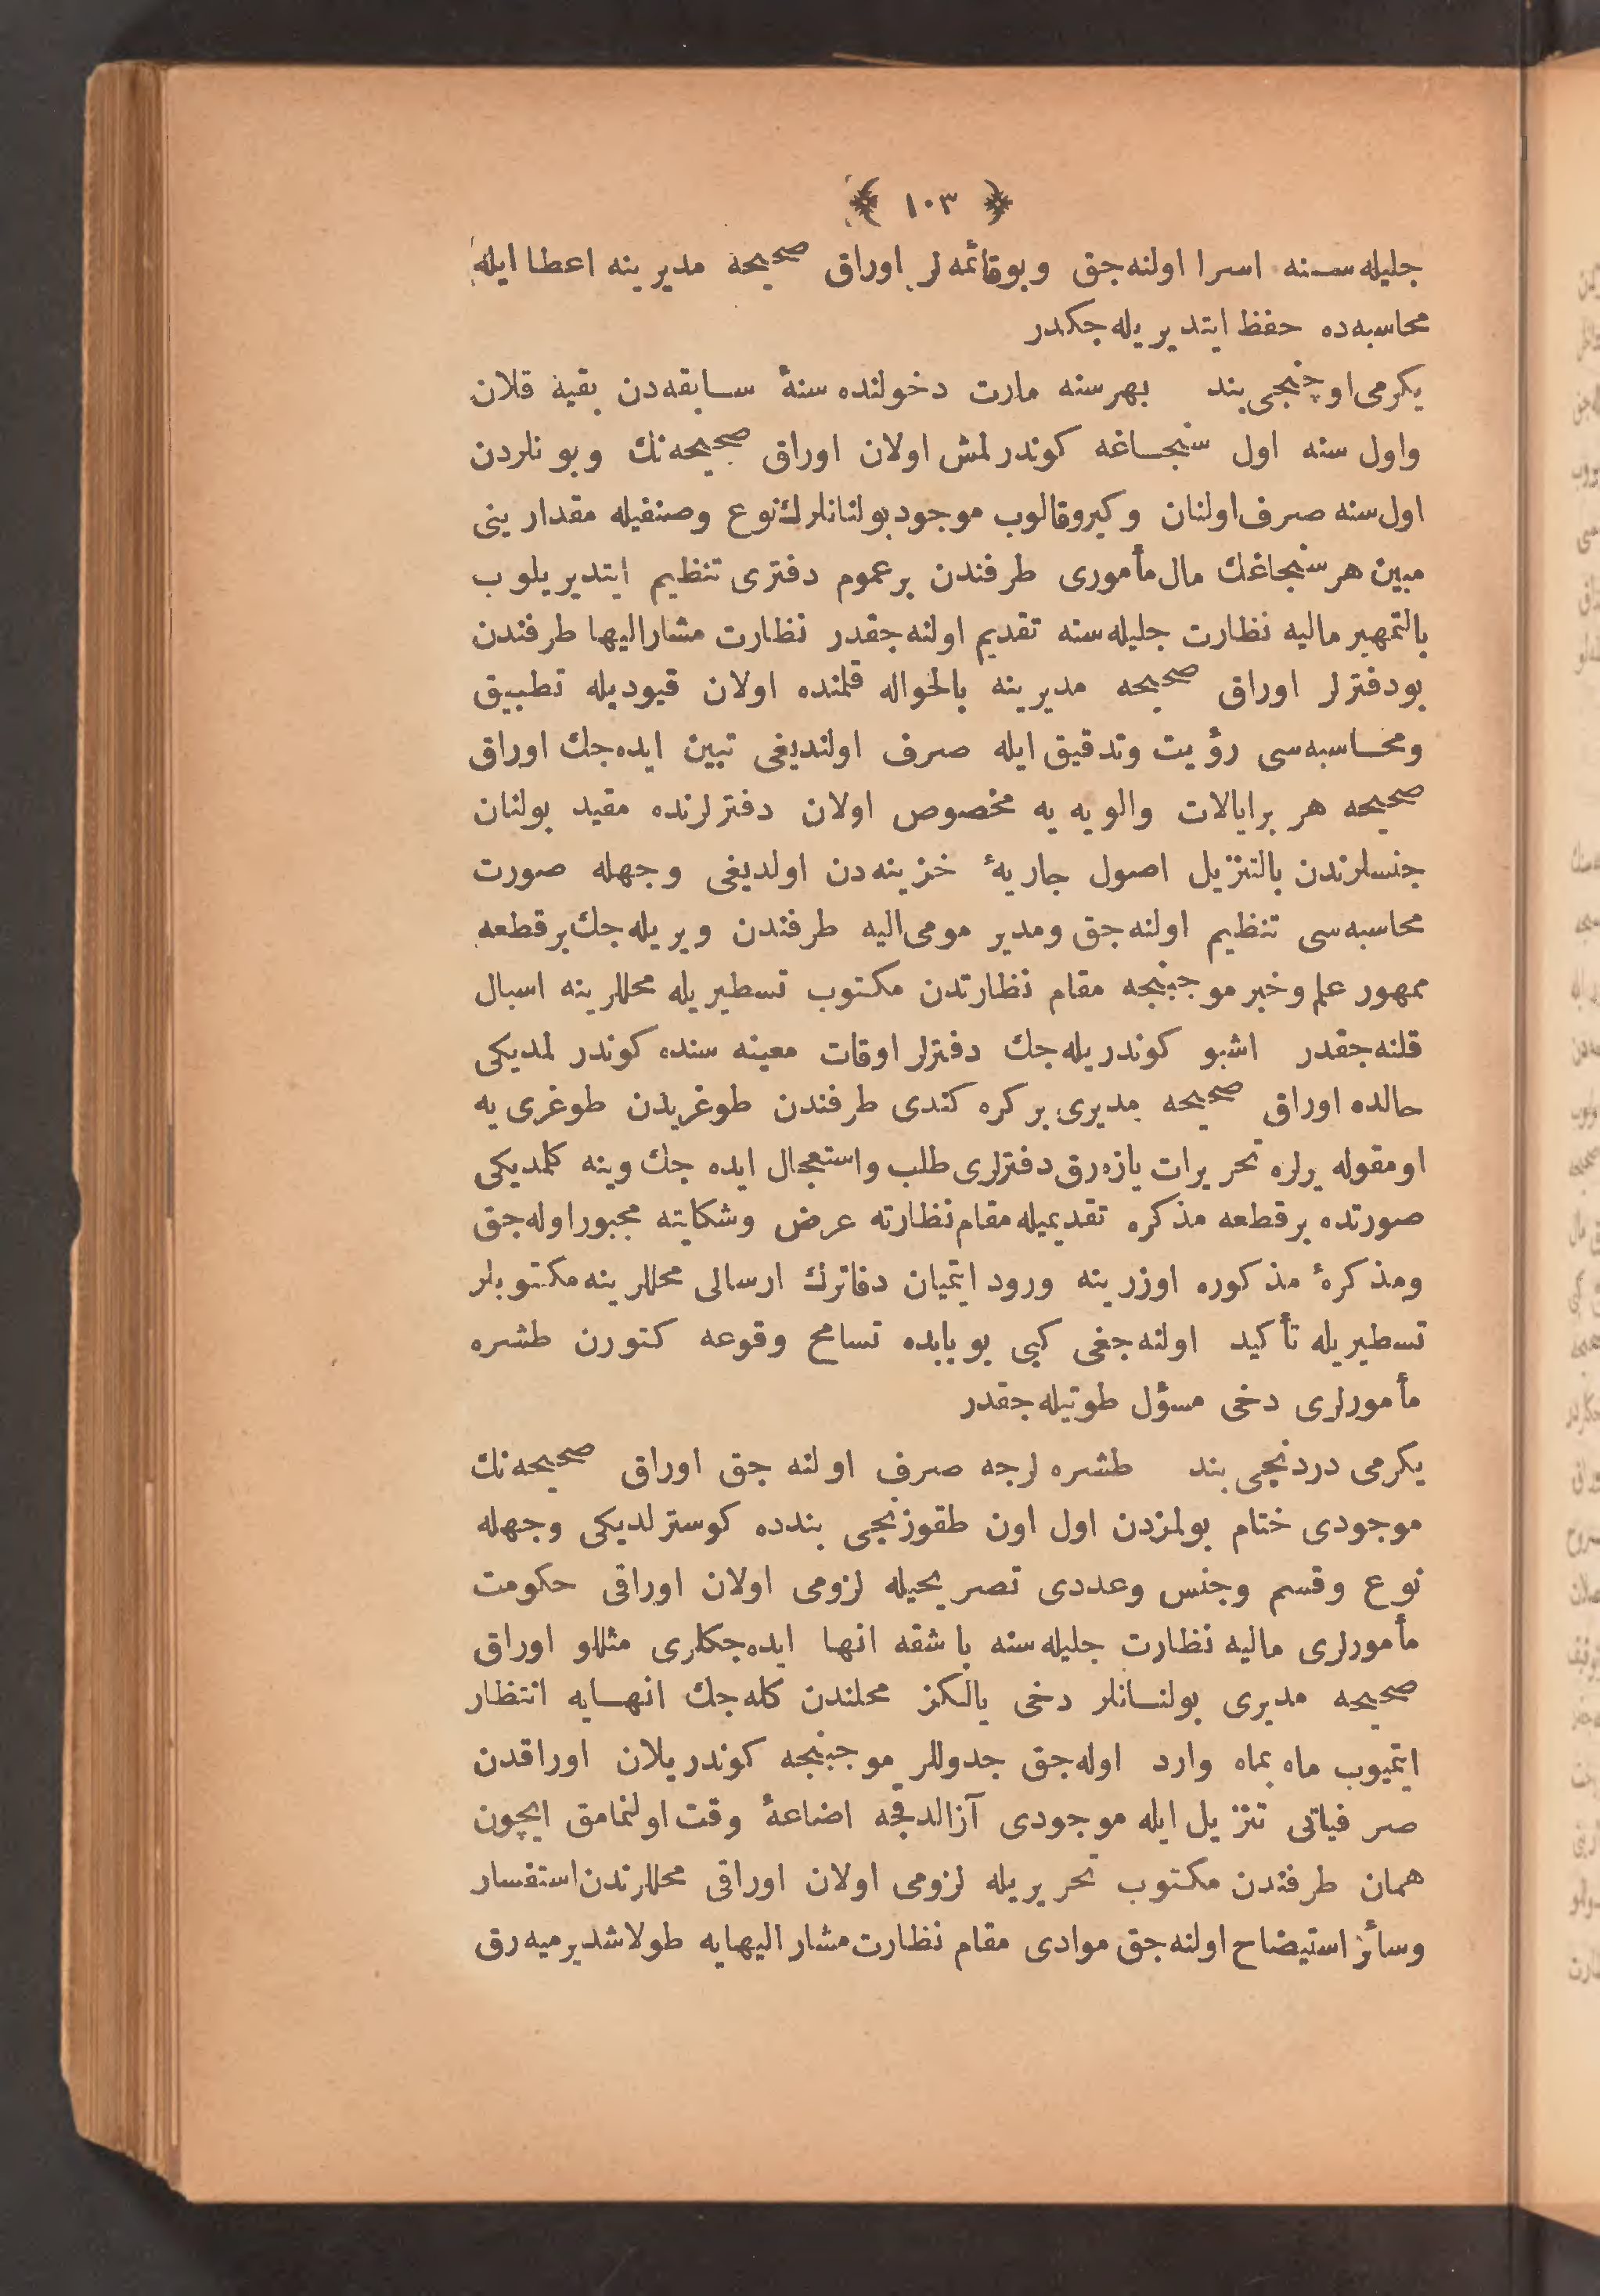 ﴿ ١٠٣ ﴾
جليله‌سنه اسرا اولنه‌جق وبوقائمه‌لر اوراق صحيحه مديرينه اعطا ايله
محاسبه‌ده حفظ ايتديريله‌جكدر
يكرمى اوچنجى بند بهرسنه مارت دخولنده سنۀ سابقه‌دن بقيه قلان
واول سنه اول سنجاغه كوندرلمش اولان اوراق صحيحه‌نك وبونلردن
اول سنه صرف اولنان وكيروقالوب موجود بولنانلرك نوع وصنفيله مقدارينى
مبين هر سنجاغك مال مأمورى طرفندن برعموم دفترى تنظيم ايتديريلوب
بالتمهير ماليه نظارت جليله‌سنه تقديم اولنه‌جقدر نظارت مشاراليها طرفندن
بودفترلر اوراق صحيحه مديرينه بالحواله قلمنده اولان قيوديله تطبيق
ومحاسبه‌سى رؤيت وتدقيق ايله صرف اولنديغى تبين ايده‌جك اوراق
صحيحه هر برايالات والويه يه مخصوص اولان دفترلرنده مقيد بولنان
جنسلرندن بالتنزيل اصول جاريۀ خزينه‌دن اولديغى وجهله صورت
محاسبه‌سى تنظيم اولنه‌جق ومدير مومى‌اليه طرفندن ويريله‌جك برقطعه
ممهور علم وخبر موجبنجه مقام نظارتدن مكتوب تسطيريله محللرينه اسبال
قلنه‌جقدر اشبو كوندريله‌جك دفترلر اوقات معينه سنده كوندرلمديكى
حالده اوراق صحيحه مديرى بركره كندى طرفندن طوغريدن طوغرى يه
اومقوله يرلره تحريرات يازه‌رق دفترلرى طلب واستعجال ايده جك وينه كلمديكى
صورتده برقطعه مذكره تقديميله مقام نظارته عرض وشكايته مجبور اوله‌جق
ومذكرۀ مذكوره اوزرينه ورود ايتميان دفاترك ارسالى محللرينه مكتوبلر
تسطيريله تأكيد اولنه‌جغى كبى بوبابده تسامح وقوعه كتورن طشره
مأمورلرى دخى مسؤل طوتيله‌جقدر
يكرمى دردنجى بند طشره لرجه صرف اولنه جق اوراق صحيحه‌نك
موجودى ختام بولمزدن اول اون طقوزنجى بندده كوسترلديكى وجهله
نوع وقسم وجنس وعددى تصريحيله لزومى اولان اوراقى حكومت
مأمورلرى ماليه نظارت جليله‌سنه باشقه انها ايده‌جكلرى مثللو اوراق
صحيحه مديرى بولنسانلر دخى يالكز محلندن كله‌جك انهايه انتظار
ايتميوب ماه بماه وارد اوله‌جق جدوللر موجبنجه كوندريلان اوراقدن
صرفياتى تنزيل ايله موجودى آزالدقجه اضاعۀ وقت اولنمامق ايچون
همان طرفندن مكتوب تحريريله لزومى اولان اوراقى محللرندن استفسار
وسائر استيضاح اولنه‌جق موادى مقام نظارت مشار اليهايه طولاشديرميه‌رق